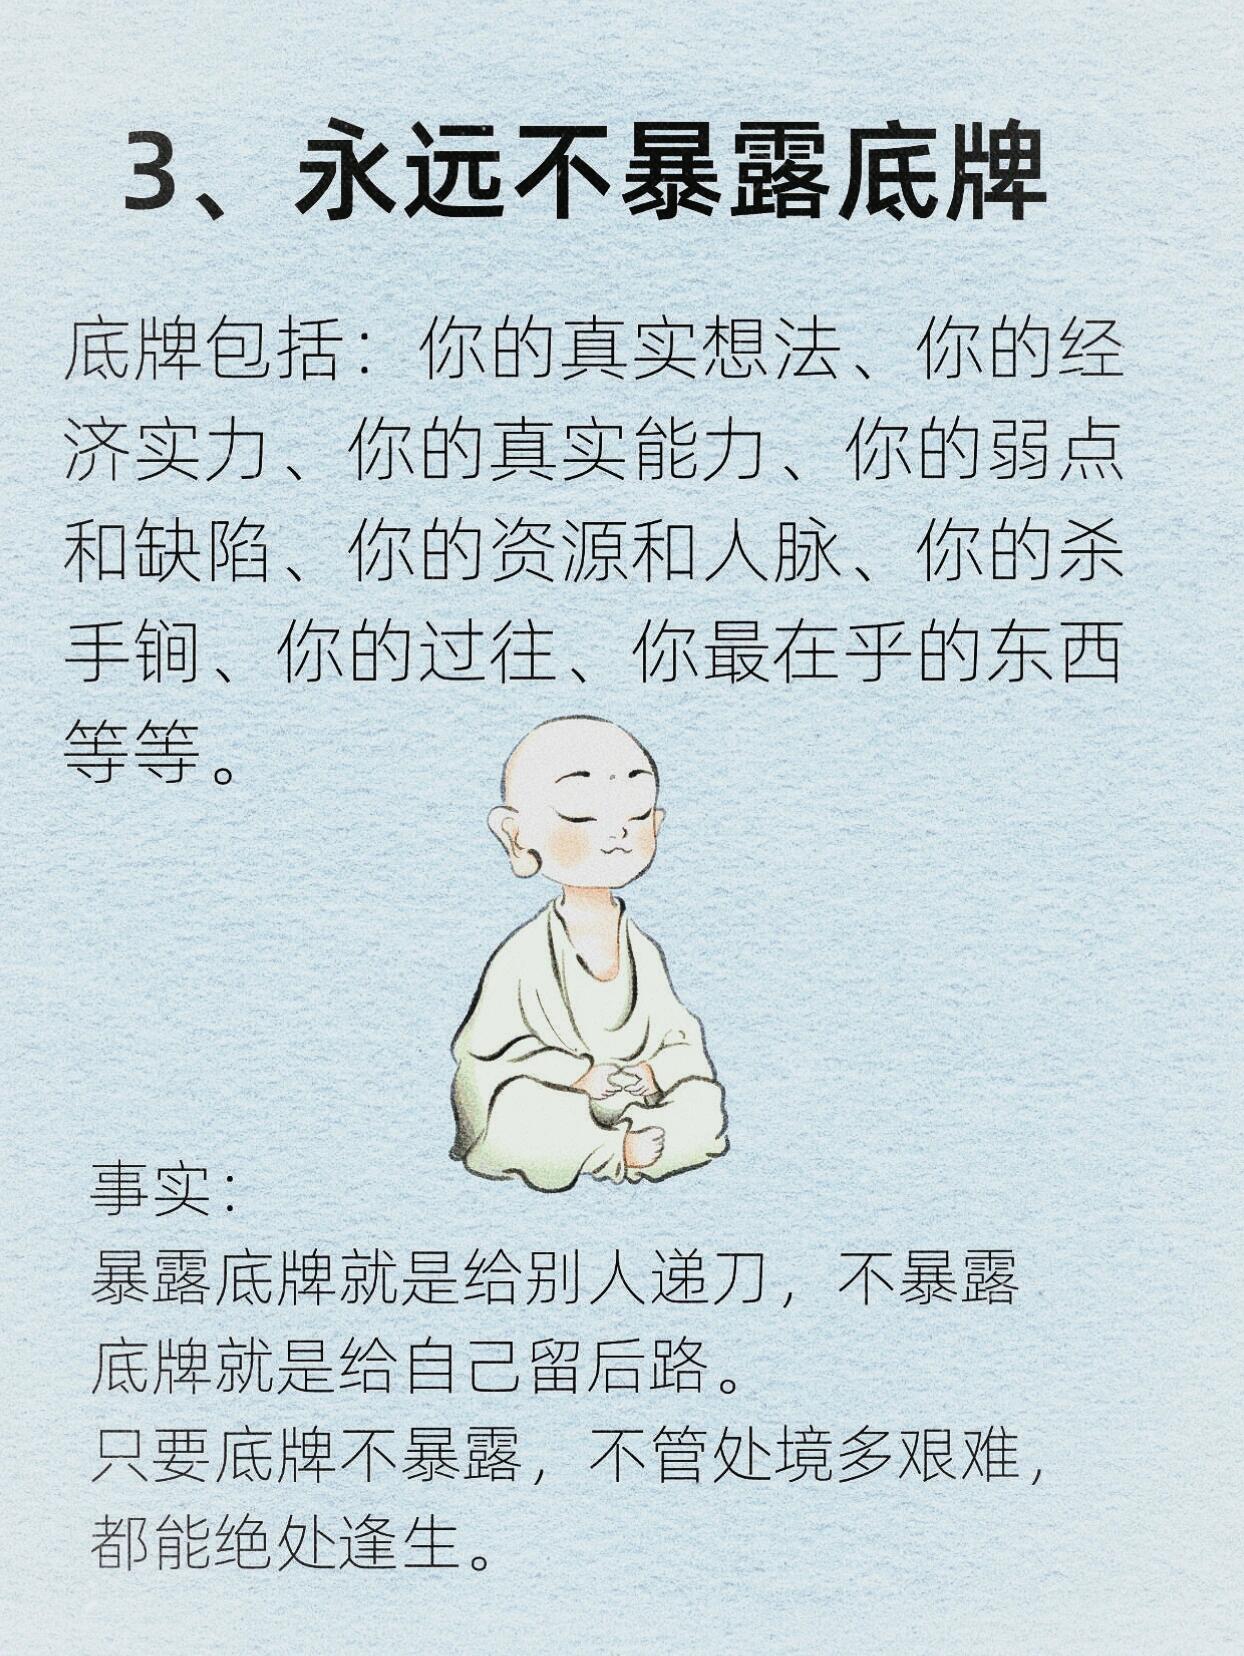 3、永远不暴露底牌
底牌包括：你的真实想法、你的经
济实力、你的真实能力、你的弱点
和缺陷、你的资源和人脉、你的杀
手锏、你的过往、你最在乎的东西
等等。
事实：
暴露底牌就是给别人递刀，不暴露
底牌就是给自己留后路。
只要底牌不暴露，不管处境多艰难，
都能绝处逢生。